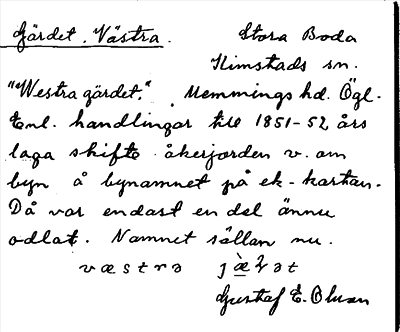 Gärdet, Västra. Stora Boda
Kimstads sn.
"Westra gärdet." Memmings hd. Ögl.
Enl. handlingar till 1851-52 års
laga skifte åkerjorden v. om
byn å bynamnet på ek-kartan.
Då var endast en del ännu
odlat. Namnet sällan nu.
væstrə jæ̀ɽət
Gustaf E. Olsson